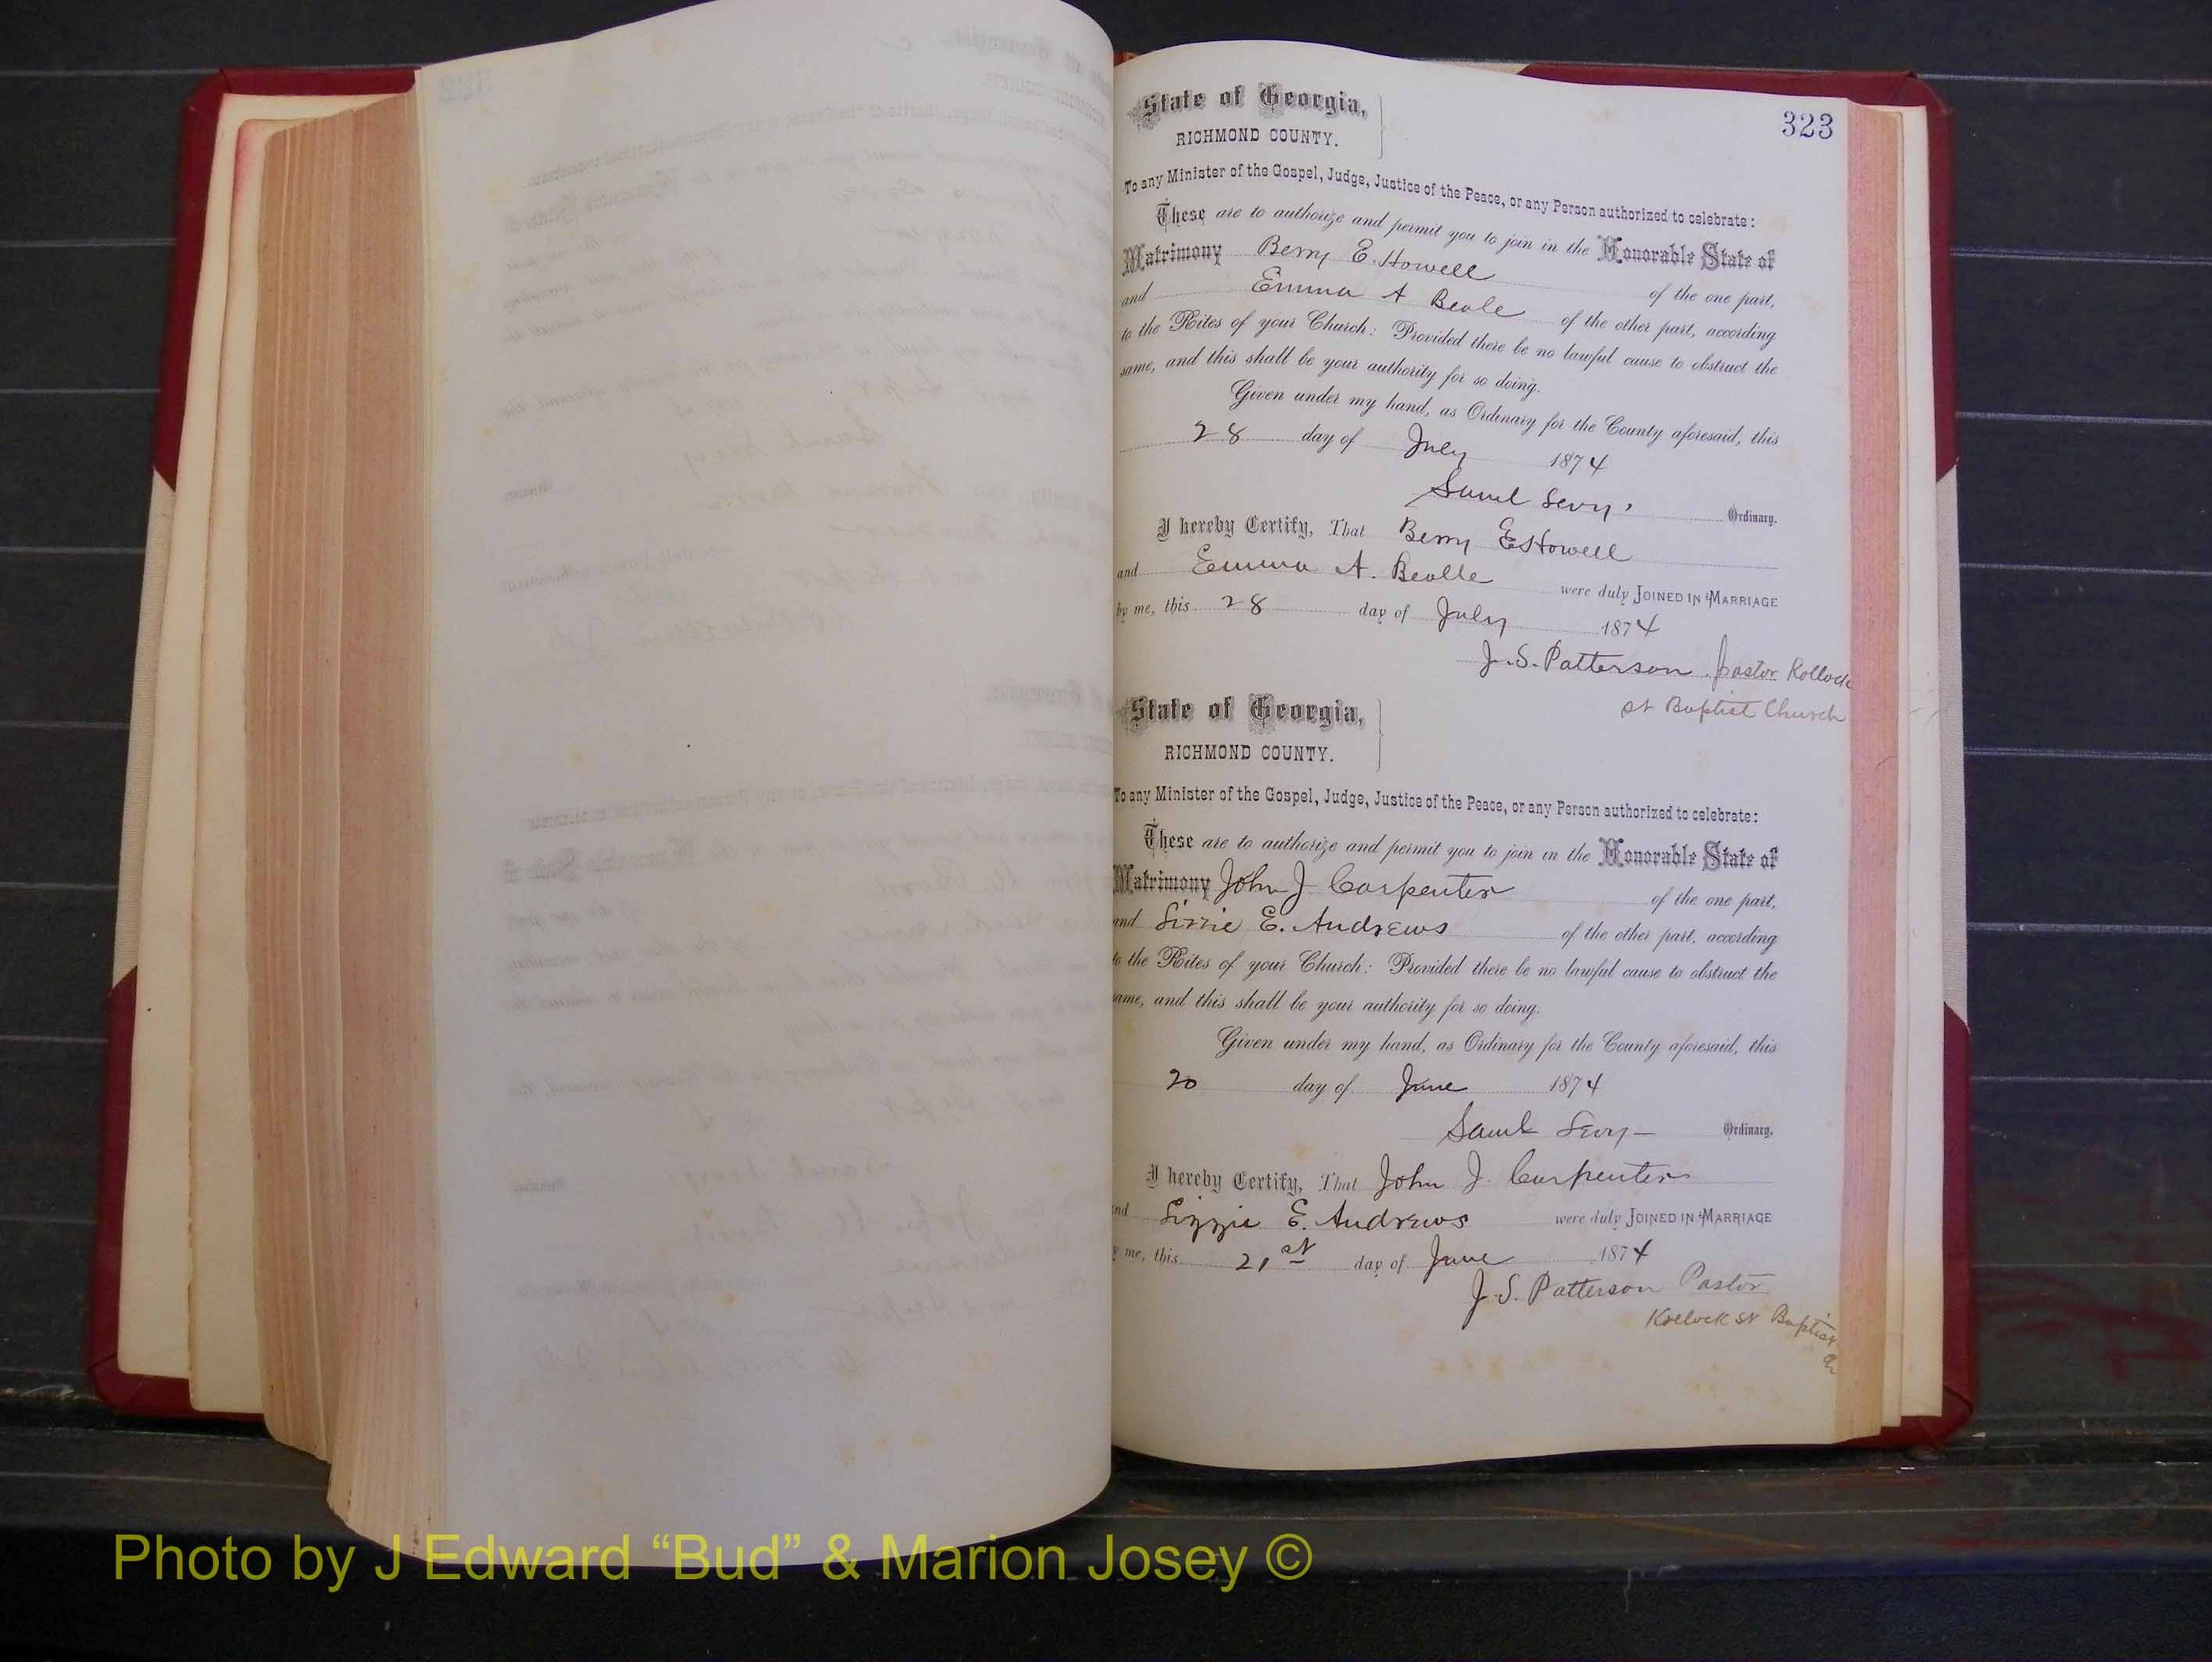 323
State of Georgia,
RICHMOND COUNTY.
To any Minister of the Gospel, Judge, Justice of the Peace, or any Person authorized to celebrate:
These are to authorize and permit you to join in the Honorable State of
Matrimony Berry E. Howell of the one part,
and Emma A Beale of the other part, according
to the Rites of your Church: Provided there be no lawful cause to obstruct the
same, and this shall be your authority for so doing.
Given under my hand, as Ordinary for the County aforesaid, this
28 day of July 1874
Saml Levy, Ordinary.
I hereby Certify, That Berry E Howell
and Emma A. Bealle were duly JOINED IN MARRIAGE
by me, this 28 day of July 1874
J. S. Patterson. Pastor Kollock
st Baptist Church
State of Georgia,
RICHMOND COUNTY.
To any Minister of the Gospel, Judge, Justice of the Peace, or any Person authorized to celebrate:
These are to authorize and permit you to join in the Honorable State of
Matrimony John J Carpenter of the one part,
and Lizzie E. Andrews of the other part, according
to the Rites of your Church: Provided there be no lawful cause to obstruct the
same, and this shall be your authority for so doing.
Given under my hand, as Ordinary for the County aforesaid, this
20 day of June 1874
Saml Levy Ordinary.
I hereby Certify, That John J. Carpenter
and Lizzie E. Andrews were duly JOINED IN MARRIAGE
by me, this 21st day of June 1874
J. S. Patterson Pastor
Kollock st Baptist
Ch
Photo by J Edward “Bud” & Marion Josey ©